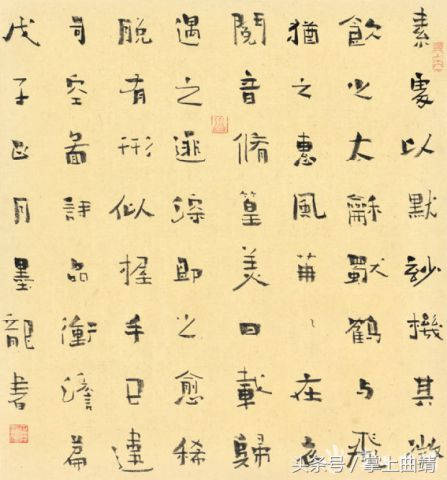 素處以默玅機其微
飲之太龢獨鶴与飛
猶之惠風苒〻在衣
閱音脩篁美曰載歸
遇之匪深即之愈稀
脫有形似握手已違
司空圖詩品衝澹篇
戊子正月墨龍書
头条号/掌上曲靖